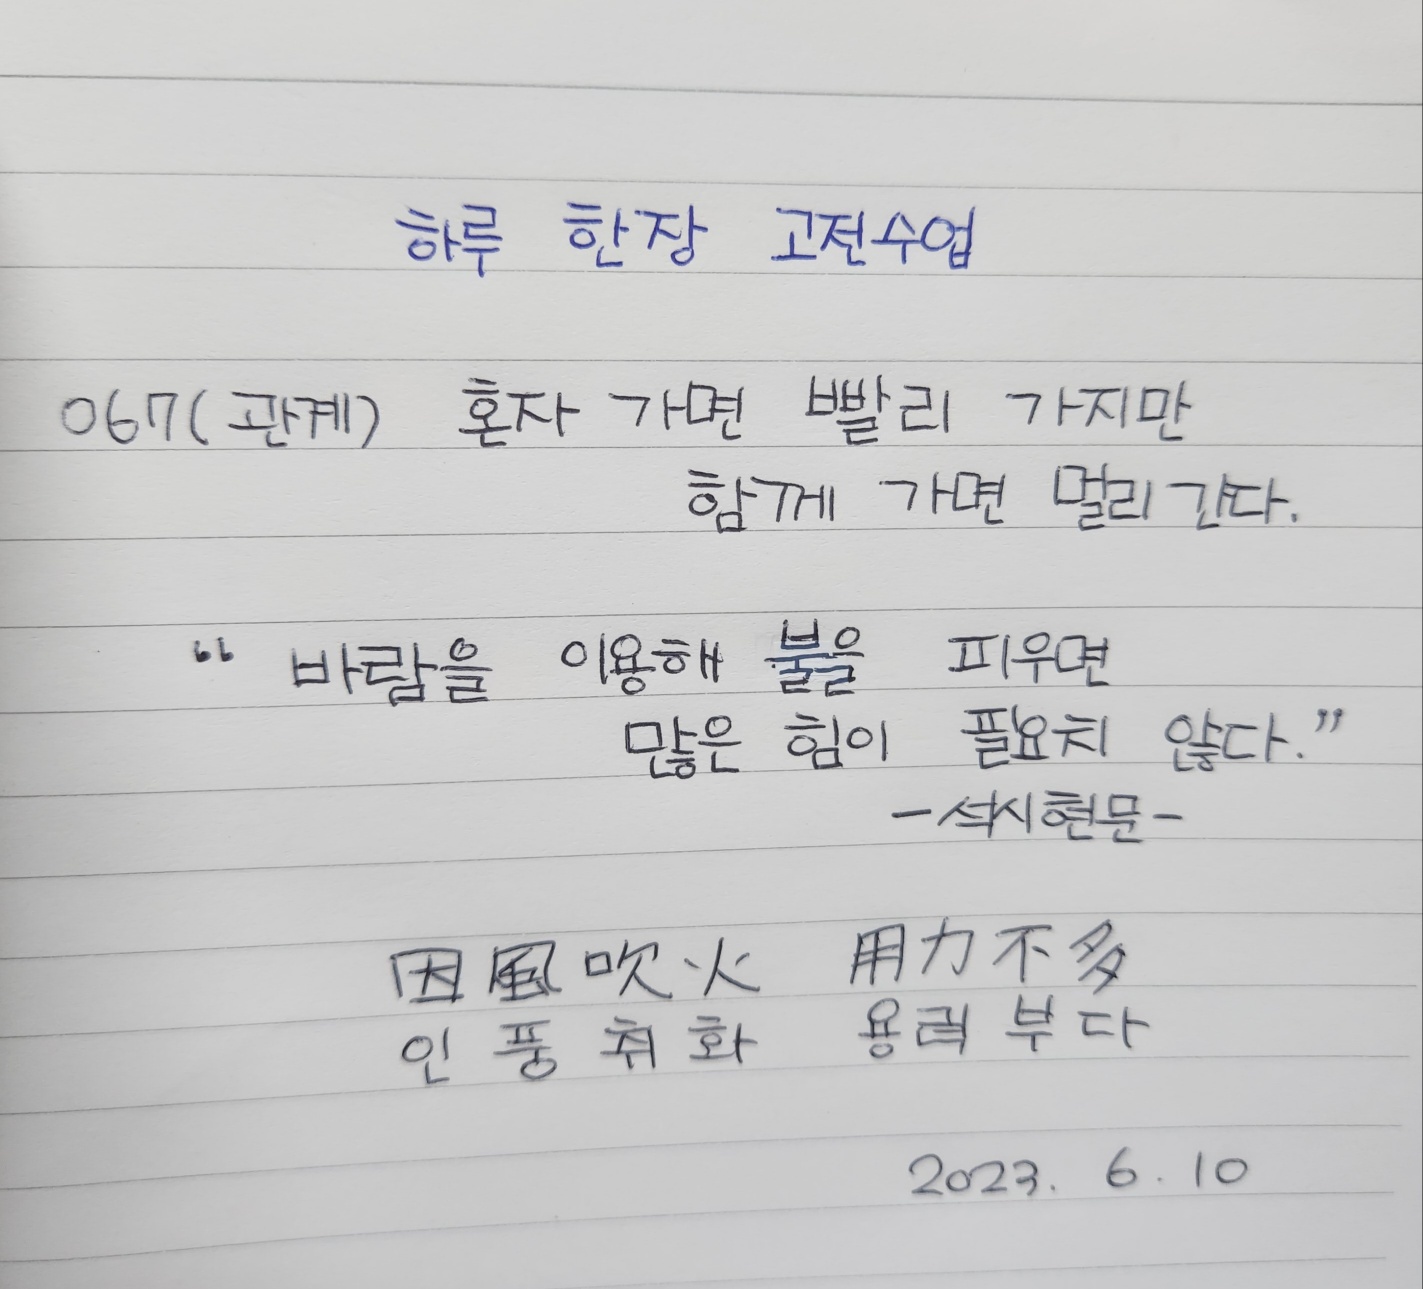 하루 한장 고전수업
067(관계) 혼자 가면 빨리 가지만
함께 가면 멀리 간다.
“바람을 이용해 불을 피우면
많은 힘이 필요치 않다.”
-석시현문-
因風吹火 用力不多
인풍취화 용력부다
2023. 6. 10